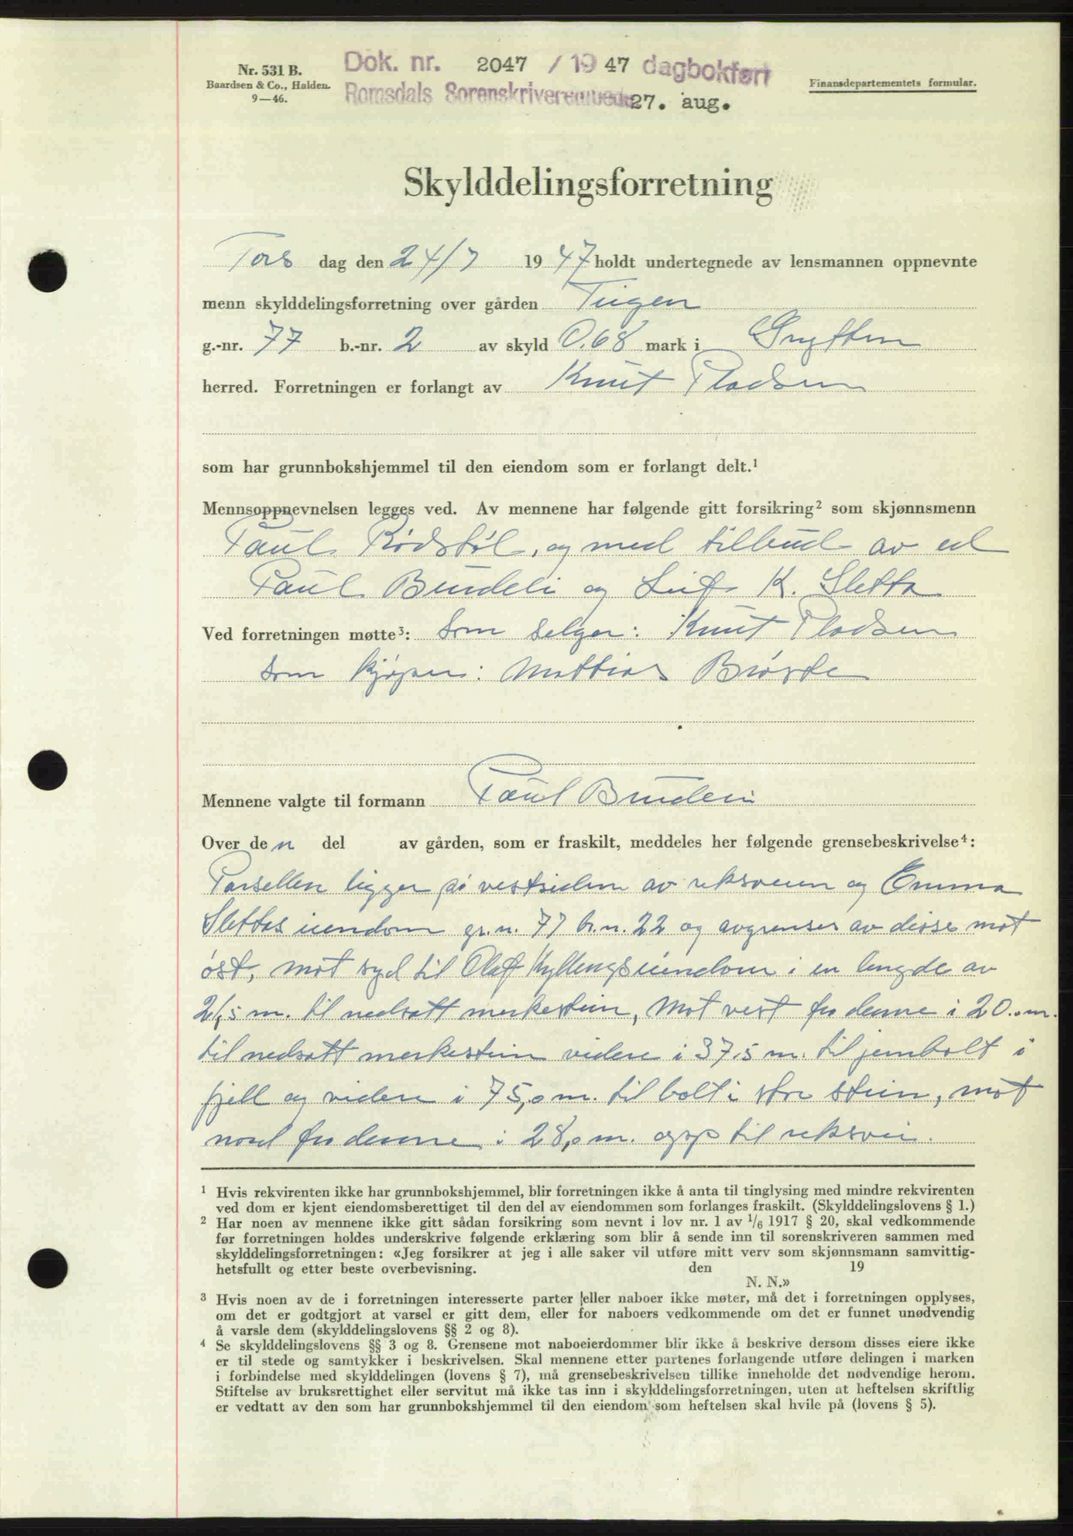 Nr. 531 B.
Baardsen & Co., Halden.
9—46.
Dok. nr. 2047 / 1947 dagbokført
Romsdals Sorenskriverembede 27. aug.
Finansdepartementets formular.
Skylddelingsforretning
Tors dag den 24/7 1947 holdt undertegnede av lensmannen oppnevnte
menn skylddelingsforretning over gården Tiigen
g.-nr. 77 b.-nr. 2 av skyld 0.68 mark i Grytten
herred. Forretningen er forlangt av Knut Pladsen
som har grunnbokshjemmel til den eiendom som er forlangt delt.¹
Mennsoppnevnelsen legges ved. Av mennene har følgende gitt forsikring² som skjønnsmenn
Paul Rødstøl, og med tilbud av ed
Paul Bruderi og Leif K. Sletta
Ved forretningen møtte³: Som selger: Knut Pladsen
Som kjøper: Mattias Brøste
Mennene valgte til formann Paul Bruderi
Over den del av gården, som er fraskilt, meddeles her følgende grensebeskrivelse⁴:
Parsellen ligger på vestsiden av riksveien og Emma
Slettas eiendom gr.n. 77 br.n. 22 og avgrenses av disse mot
øst, mot syd til Olaf Kyllings eiendom i en lengde av
21,5 m. til nedsatt merkestein, mot vest fra denne i 20.0 m.
til nedsatt merkestein videre i 37.5 m. til jernbolt i
fjell og videre i 75,0 m. til bolt i stor stein, mot
nord fra denne i 28,0 m. opp til riksvei.
¹ Hvis rekvirenten ikke har grunnbokshjemmel, blir forretningen ikke å anta til tinglysing med mindre rekvirenten
ved dom er kjent eiendomsberettiget til den del av eiendommen som forlanges fraskilt. (Skylddelingslovens § 1.)
² Har noen av mennene ikke gitt sådan forsikring som nevnt i lov nr. 1 av 1/6 1917 § 20, skal vedkommende
før forretningen holdes underskrive følgende erklæring som blir å sende inn til sorenskriveren sammen med
skylddelingsforretningen: «Jeg forsikrer at jeg i alle saker vil utføre mitt verv som skjønnsmann samvittig-
hetsfullt og etter beste overbevisning. den 19
N. N.»
³ Hvis noen av de i forretningen interesserte parter eller naboer ikke møter, må det i forretningen opplyses,
om det er godtgjort at varsel er gitt dem, eller for naboers vedkommende om det er funnet unødvendig
å varsle dem (skylddelingslovens §§ 2 og 8).
⁴ Se skylddelingslovens §§ 3 og 8. Grensene mot naboeierdommer blir ikke å beskrive dersom disses eiere ikke
er til stede og samtykker i beskrivelsen. Skal mennene etter partenes forlangende utføre delingen i marken
i forbindelse med skylddelingen (lovens § 7), må grensebeskrivelsen tillike inneholde det nødvendige herom.
Stiftelse av bruksrettighet eller servitut må ikke tas inn i skylddelingsforretningen, uten at heftelsen skriftlig
er vedtatt av den som har grunnbokshjemmel til den eiendom som heftelsen skal hvile på (lovens § 5).